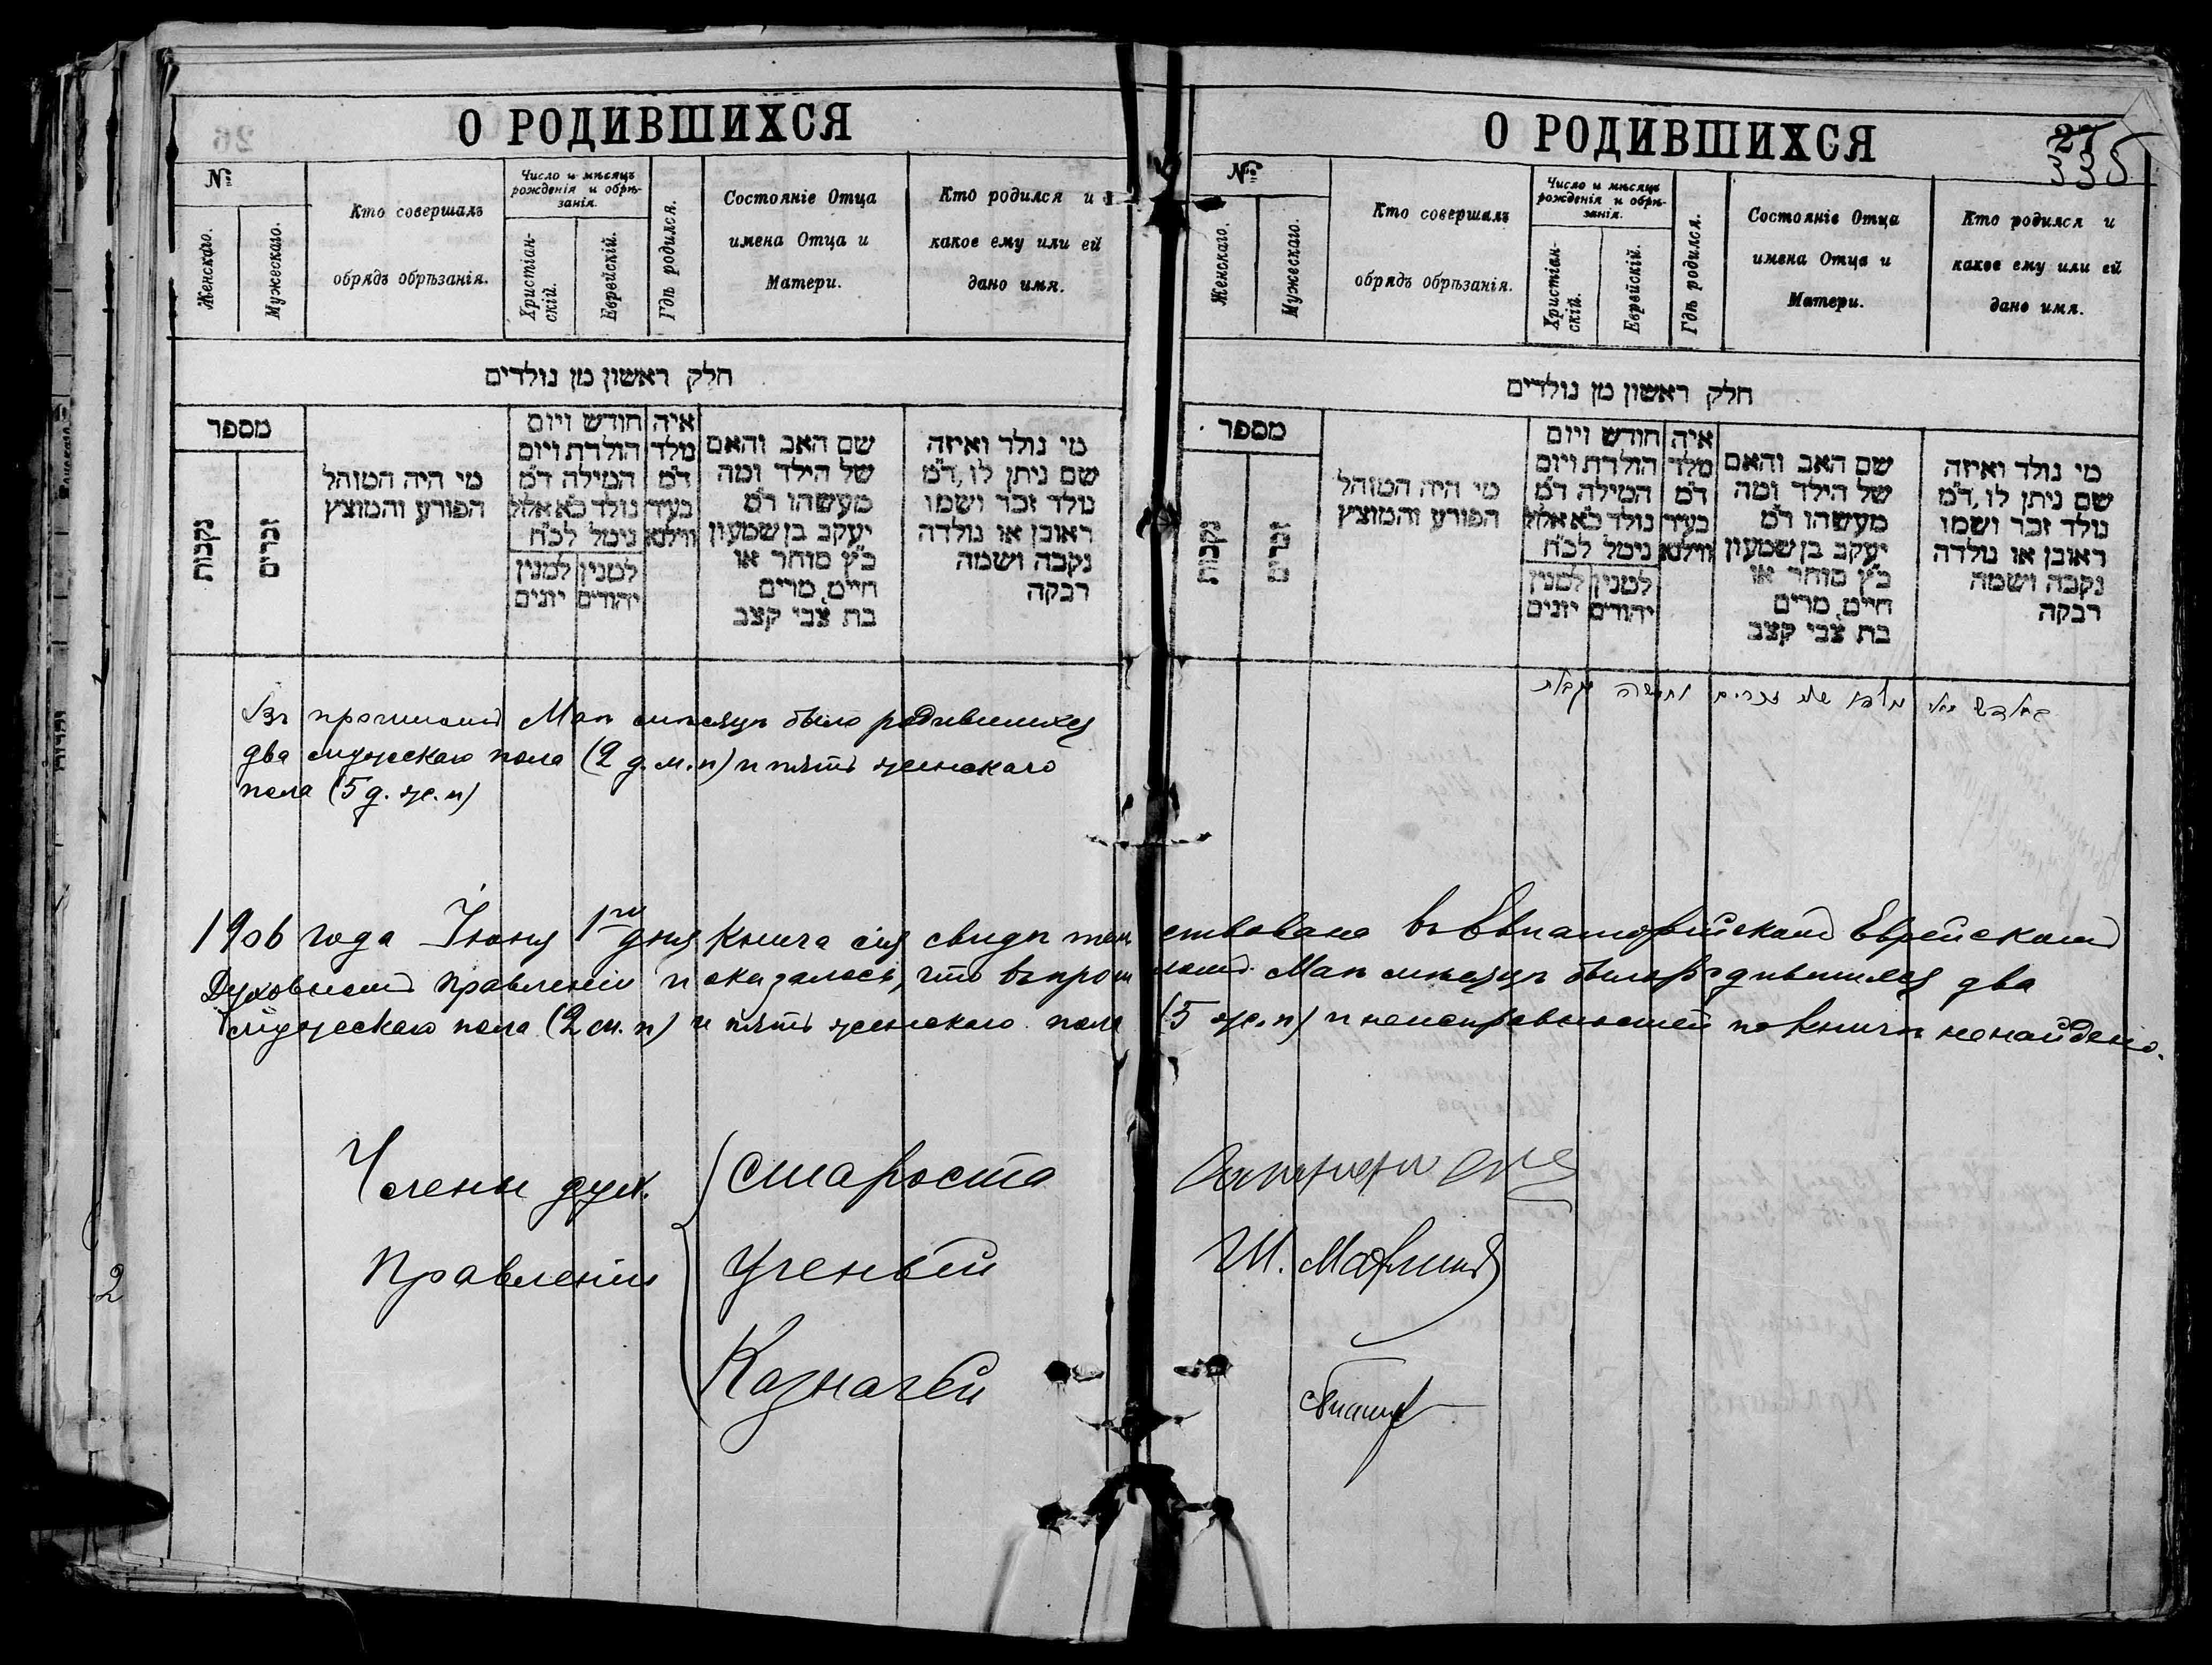 О РОДИВШИХСЯ
№
Женскаго.
Мужескаго.
Кто совершалъ
обрядъ обрѣзанія.
Число и мѣсяцъ
рожденія и обрѣ-
занія.
Христіан-
скій.
Еврейскій.
Гдѣ родился.
Состояніе Отца
имена Отца и
Матери.
Кто родился и
какое ему или ей
дано имя.
חלק ראשון מן נולדים
מספר
נקבות
זכרים
מי היה המוהל
הפורע והמוצץ
חודש ויום
הולדת ויום
המילה ד"מ
נולד כ"א אלול
נימל לכ"ח
למנין
יונים
למנין
יהודים
איה
מלד
ד"מ
בעיר
ווילנא
שם האב והאם
של הילד ומה
מעשהו ד"מ
יעקב בן שמעון
כ"ץ סוחר או
חייט, מרים
בת צבי קצב
מי נולד ואיזה
שם ניתן לו, ד"מ
נולד זכר ושמו
ראובן או נולדה
נקבה ושמה
רבקה
Въ прошломъ Маѣ мѣсяцѣ было родившихся
два мужескаго пола (2 д. м. п) и пять женскаго
пола (5 д. ж. п)
О РОДИВШИХСЯ
27
335
№
Женскаго.
Мужескаго.
Кто совершалъ
обрядъ обрѣзанія.
Число и мѣсяцъ
рожденія и обрѣ-
занія.
Христіан-
скій.
Еврейскій.
Гдѣ родился.
Состояніе Отца
имена Отца и
Матери.
Кто родился и
какое ему или ей
дано имя.
חלק ראשון מן נולדים
מספר
נקבות
זכרים
מי היה המוהל
הפורע והמוצץ
חודש ויום
הולדת ויום
המילה ד"מ
נולד כ"א אלול
נימל לכ"ח
למנין
יונים
למנין
יהודים
איה
מלד
ד"מ
בעיר
ווילנא
שם האב והאם
של הילד ומה
מעשהו ד"מ
יעקב בן שמעון
כ"ץ סוחר או
חייט, מרים
בת צבי קצב
מי נולד ואיזה
שם ניתן לו, ד"מ
נולד זכר ושמו
ראובן או נולדה
נקבה ושמה
רבקה
1906 года Іюня 1го дня книга сія свидѣтельствована въ Евпаторійскомъ Еврейскомъ
Духовномъ Правленіи и оказалось, что въ прошломъ Маѣ мѣсяцѣ было родившихся два
мужескаго пола (2 м. п) и пять женскаго пола (5 ж. п) и неисправностей по книгѣ не найдено.
Члены дух.
Правленія
Староста
Ученый
Ш.
Казначей